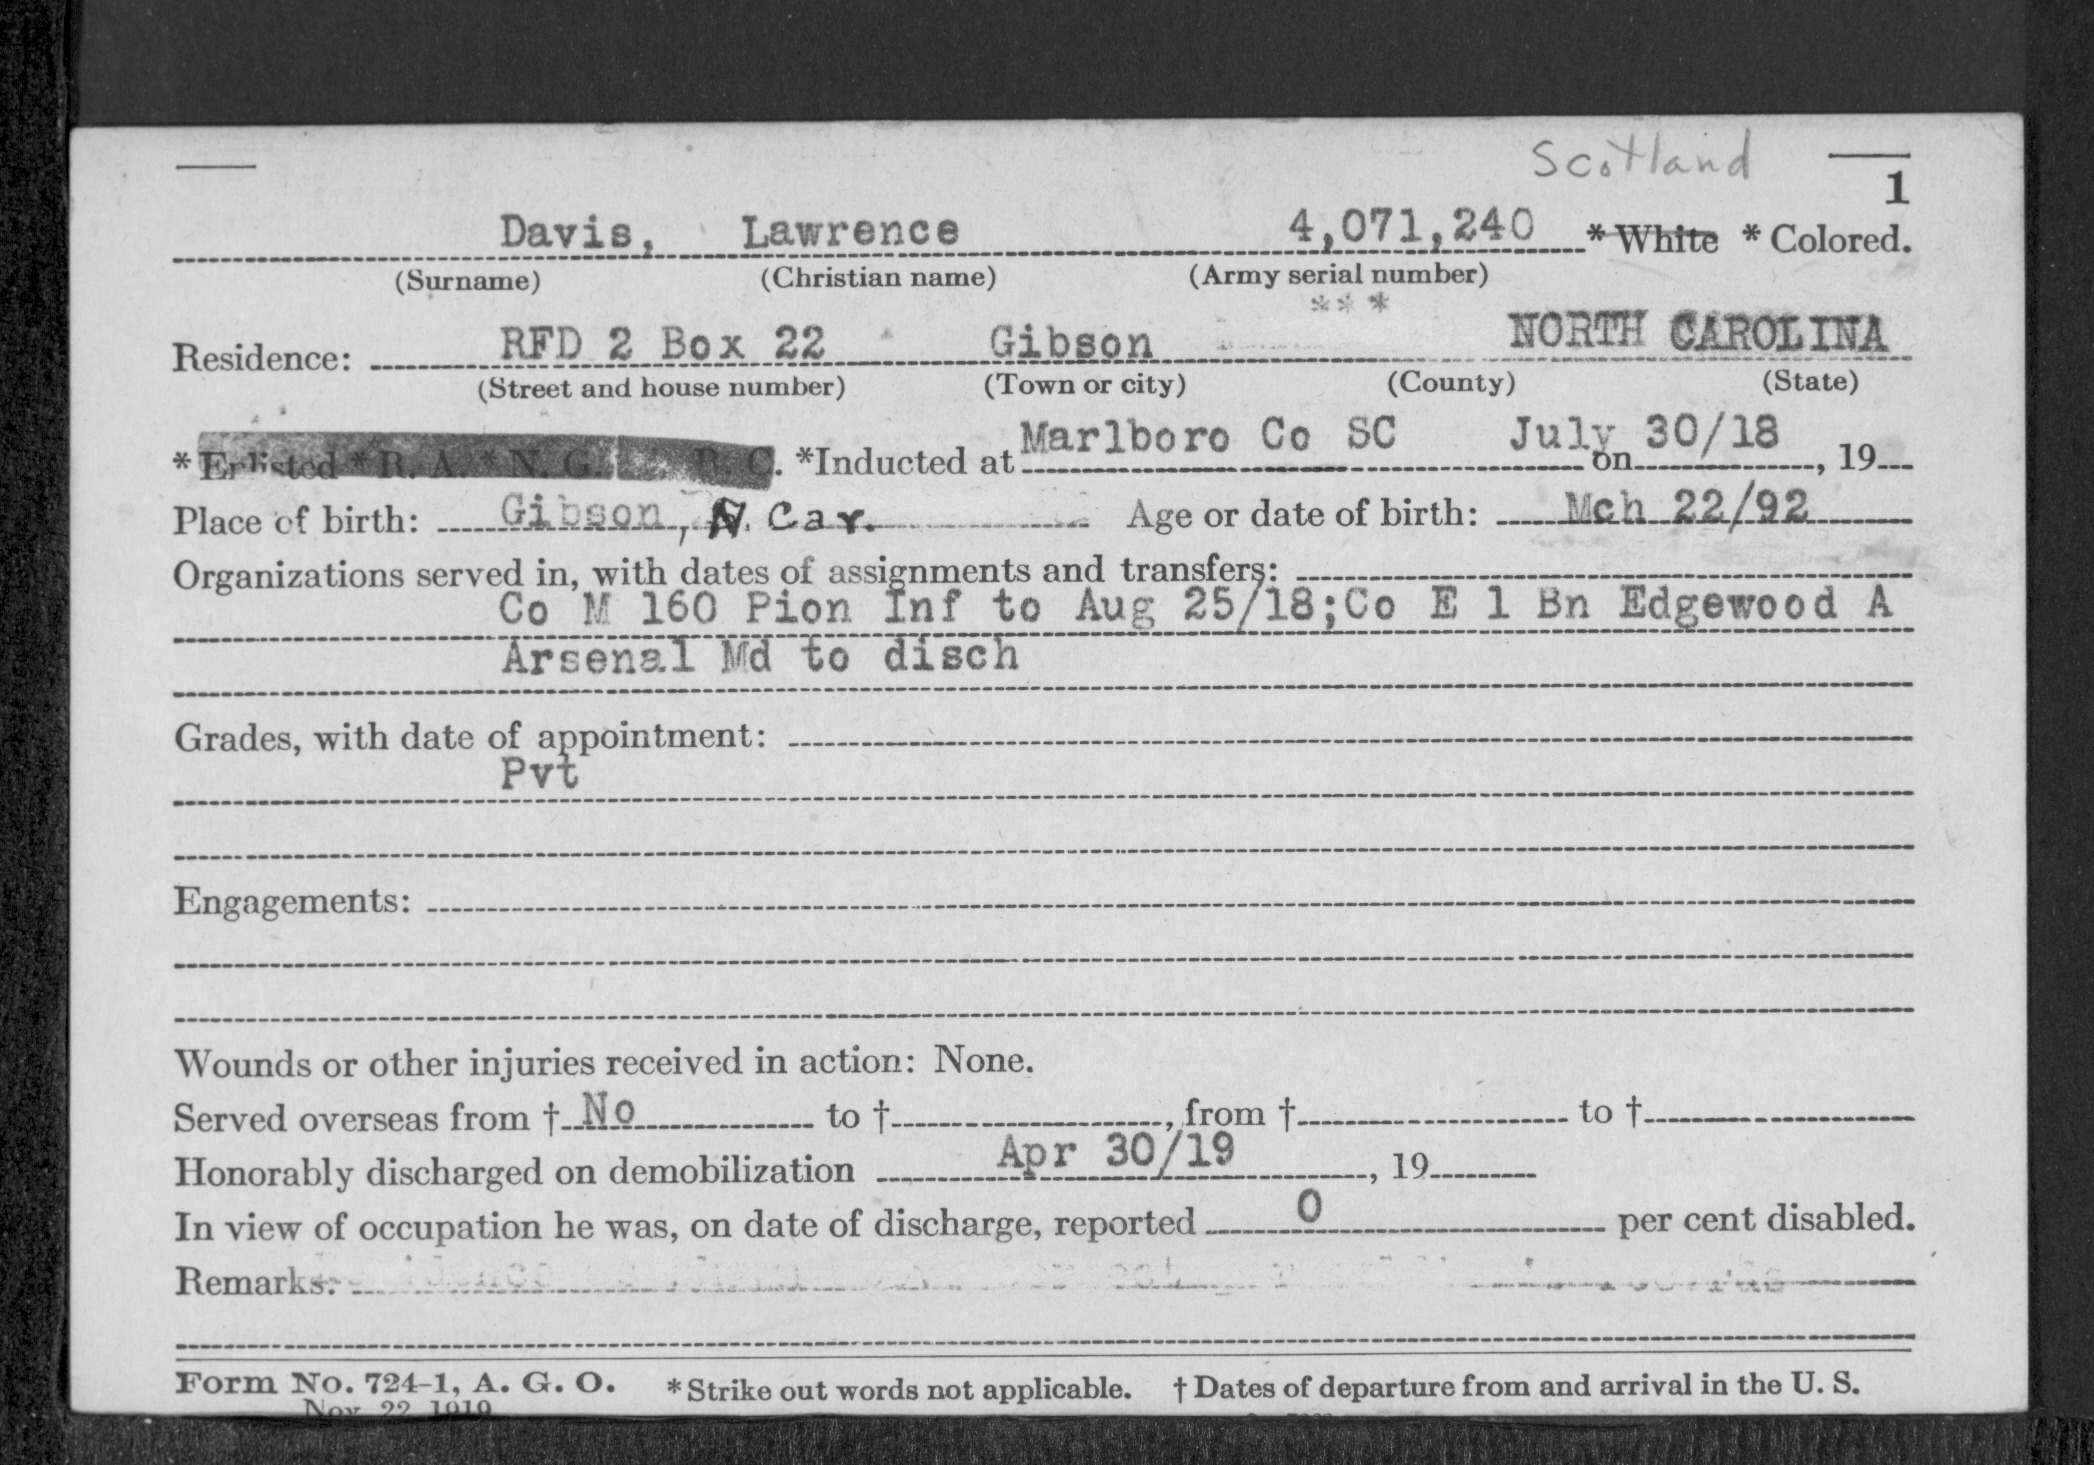 Scotland
1
Davis, Lawrence 4,071,240 *White *Colored.
(Surname) (Christian name) (Army serial number)
***
Residence: RFD 2 Box 22 Gibson NORTH CAROLINA
(Street and house number) (Town or city) (County) (State)
*Enlisted *R. A. *N. G. R. C. *Inducted at Marlboro Co SC on July 30/18, 19
Place of birth: Gibson, N. Car. Age or date of birth: Mch 22/92
Organizations served in, with dates of assignments and transfers:
Co M 160 Pion Inf to Aug 25/18;Co E 1 Bn Edgewood A
Arsenal Md to disch
Grades, with date of appointment:
Pvt
Engagements:
Wounds or other injuries received in action: None.
Served overseas from † No to †, from † to †
Honorably discharged on demobilization Apr 30/19, 19
In view of occupation he was, on date of discharge, reported 0 per cent disabled.
Remarks:
Form No. 724-1, A. G. O. *Strike out words not applicable. †Dates of departure from and arrival in the U. S.
Nov. 22, 1919